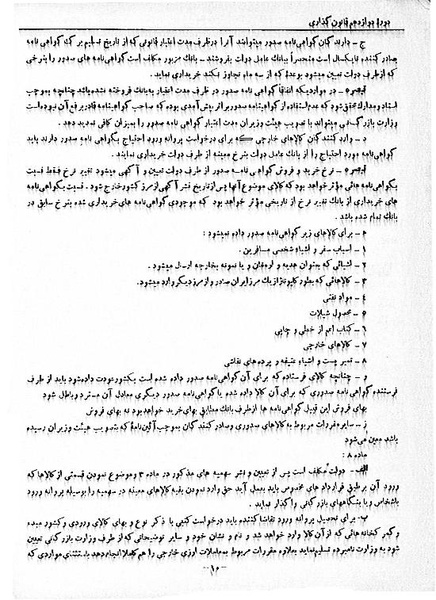 دوره دوازدهم قانون گذاری
ج - دارندگان گواهی نامه صدور میتوانند آنرا در ظرف مدت اعتبار قانونی که از تاریخ تسلیم برگ گواهی نامه
بصادر کننده تا یکسال است منحصراً ببانک عامل دولت بفروشند - بانک مزبور مکلف است گواهی نامه های صدور را بنرخی
که از طرف دولت تعیین میشود بوعده که از سه ماه تجاوز نکند خریداری نماید.
تبصره - در مواردیکه اتفاقا گواهی نامه صدور در ظرف مدت اعتبار به بانک فروخته نشده باشد چنانچه بموجب
اسناد و مدارک محقق شود که عدم استفاده از گواهینامه صدور بر اثر پیش آمدی بوده که صاحب گواهینامه قادر برفع آن نبوده است
وزارت بازرگانی میتواند با تصویب هیئت وزیران مدت اعتبار گواهی نامه صدور را بمیزان کافی تمدید دهد.
د - وارد کنندگان کالاهای خارجی که برای درخواست پروانه ورود احتیاج بگواهی نامه صدور دارند باید
گواهی نامه مورد احتیاج را از بانک عامل دولت بنرخ معینه از طرف دولت خریداری نمایند.
تبصره - نرخ خرید و فروش گواهی نامه صدور از طرف دولت تعیین و آگهی میشود تغییر نرخ فقط نسبت
بگواهی نامه هائی مؤثر خواهد بود که کالای موضوع آنها پس از تاریخ نشر آگهی از مرز کشور خارج شود. نسبت بگواهی نامه
های خریداری از بانک تغییر نرخ از تاریخی مؤثر خواهد بود که موجودی گواهی نامه های خریداری شده بنرخ سابق در
بانک تمام شده باشد.
ه - برای کالاهای زیر گواهی نامه صدور داده نمیشود:
۱ - اسباب سفر و اشیاء شخصی مسافرین.
۲ - اشیائی که بعنوان هدیه و ارمغان و یا نمونه بخارجه ارسال میشود.
۳ - کالاهائی که بطور کابوتاژ از یک مرز ایران صادر و از مرز دیگر وارد میشود.
٤ - مواد نفتی
٥ - محصول شیلات
٦ - کتاب اعم از خطی و چاپی
۷ - کالاهای خارجی
۸ - تمبر پست و اشیاء عتیقه و پرده های نقاشی
و - چنانچه کالای فرستاده که برای آن گواهی نامه صدور داده شده است بکشور عودت داده شود باید از طرف
فرستنده گواهی نامه صدوری که برای آن کالا داده شده یا گواهی نامه صدور دیگری معادل آن مسترد و باطل شود
بهای فروش این قبیل گواهی نامه ها از طرف بانک مطابق بهای خرید خواهد بود نه بهای فروش
ز - سایر مقررات مربوط به گواهی نامه های صدوری و صادر کنندگان بموجب آئین نامه که بتصویب هیئت وزیران رسیده
باشد معین میشود
ماده ۸:
الف - دولت مکلف است پس از تعیین و نشر سهمیه های مذکور در ماده ۳ و موضوع نمودن قسمتی از کالاها که
ورود آن بر طبق قراردادهای مخصوص باید بعمل آید حق وارد نمودن بقیه کالاهای معینه در سهمیه را بوسیله پروانه ورود
باشخاص و یا بنگاههای بازرگانی واگذار نماید.
ب - برای تحصیل پروانه ورود تقاضا کننده باید درخواست کتبی با ذکر نوع و بهای کالای ورودی و کشور مبدء
و گمرکخانه هائی که از آن کالا وارد خواهد شد و نام و نشان خود و سایر توضیحاتی که از طرف وزارت بازرگانی تعیین
شود به وزارت نامبرده تسلیم نماید بعلاوه مقررات مربوط به معاملات ارزی خارجی را هم کاملا انجام دهد باستثنای مواردی که
-۱۰-